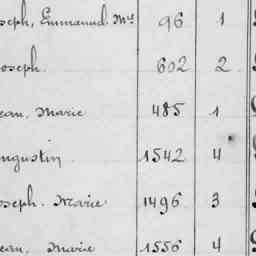 oseph, Emmanuel Mie 96 1
oseph. 602 2
ean, Marie 485 1
ugustin 1542 4
oseph. Marie 1496 3
ean, Marie 1556 4